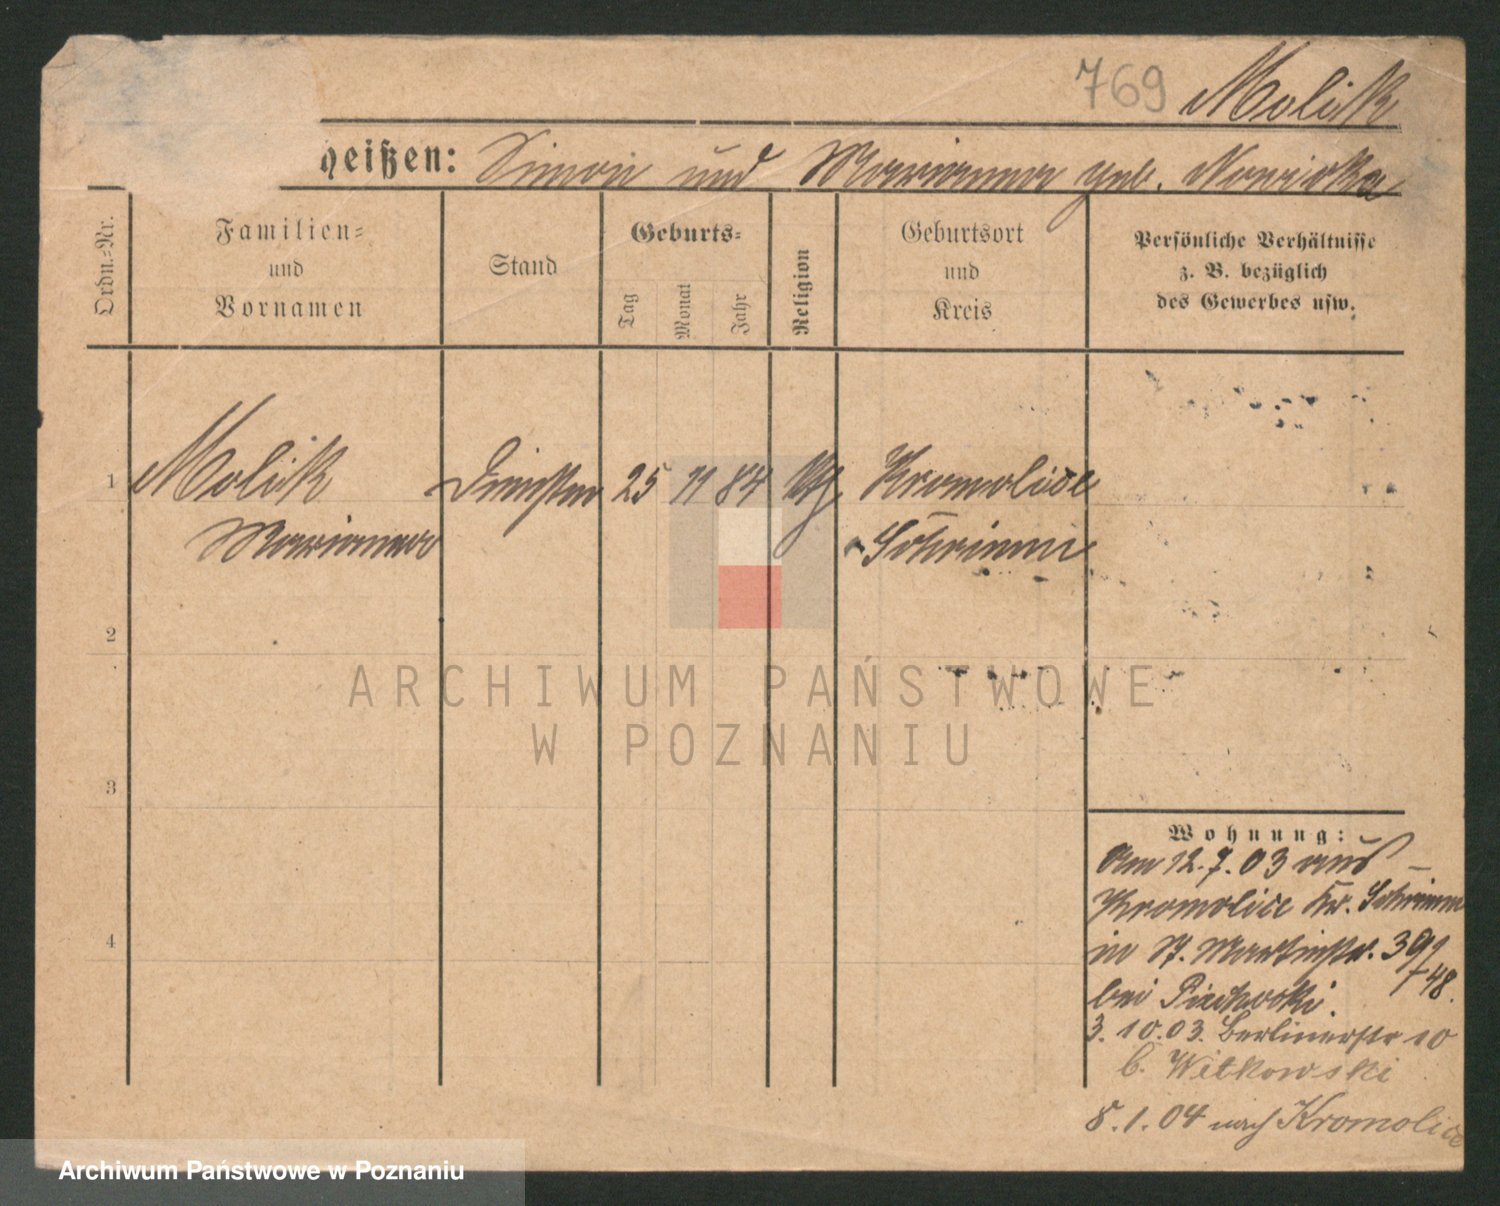 769 Molik
heißen: Simon und Marianna geb. Nowicka
Ordn.-Nr.
Familien-
und
Vornamen
Stand
Geburts-
Tag
Monat
Jahr
Religion
Geburtsort
und
Kreis
Persönliche Verhältnisse
z. B. bezüglich
des Gewerbes usw.
1 Molik 25 11 84 Kromolice
Marianna Schrimm
2
3
4
Wohnung:
Am 12.7.03 aus
Kromolice Kr. Schrimm
in St. Martinstr. 39
748.
bei
3.10.03. Berlinerstr 10
b. Witkowski
8.1.04 nach Kromolice
ARCHIWUM PAŃSTWOWE
W POZNANIU
Archiwum Państwowe w Poznaniu